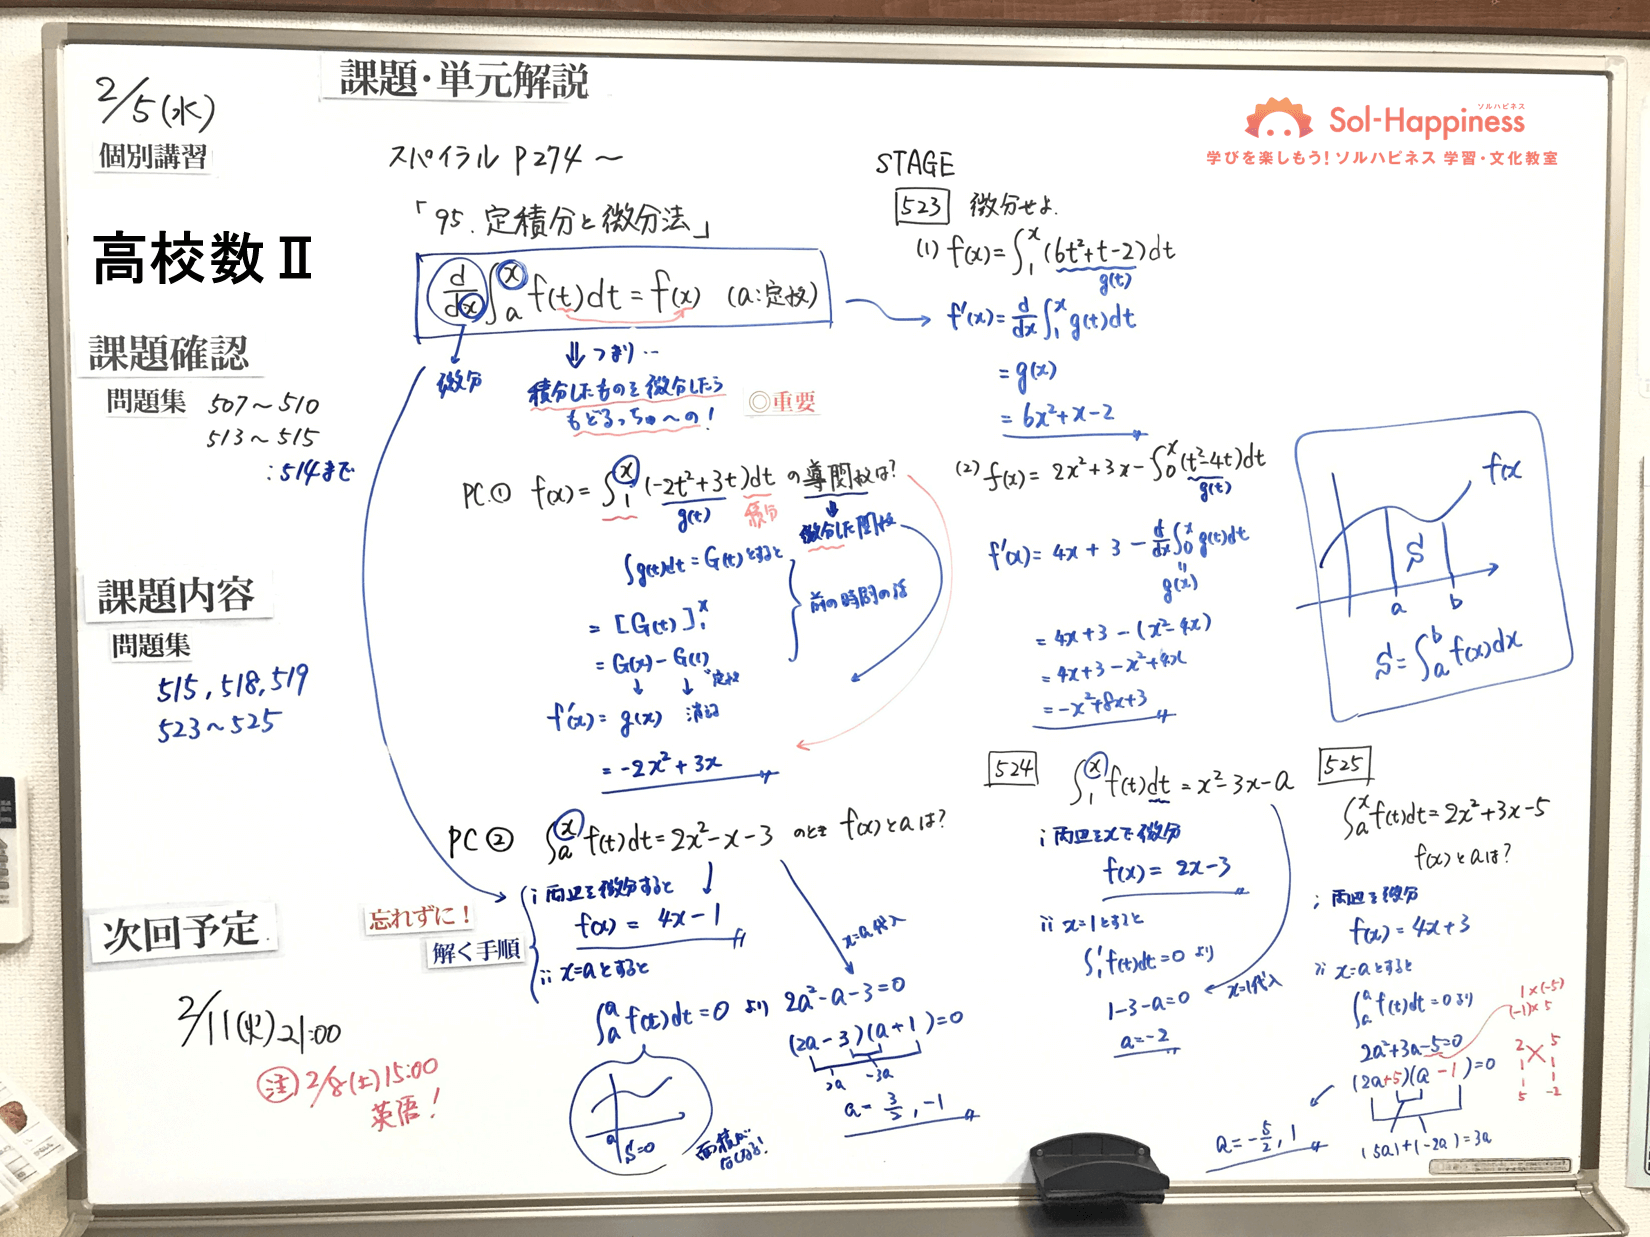 2/5(水)
個別講習
高校数Ⅱ
課題確認
問題集 507～510
513～515
:514まで
課題内容
問題集
515, 518, 519
523～525
次回予定
2/11(火)21:00
㊟ 2/8(土)15:00
英語!
課題・単元解説
スパイラル P274～
「95.定積分と微分法」
d/dx ∫ₐˣ f(t)dt = f(x) (a:定数)
微分
⇓ つまり…
積分したものを微分したら
もどるっちゅーの!
◎重要
PC① f(x) = ∫₁ˣ (-2t²+3t)dt の導関数は?
g(t) 積分
微分した関数
∫g(t)dt = G(t)とすると
= [G(t)]₁ˣ
= G(x) - G(1)
定数
前の時間の話
f'(x) = g(x) 消える
= -2x² + 3x
PC② ∫ₐˣ f(t)dt = 2x² - x - 3 のとき f(x)とaは?
忘れずに!
解く手順
i 両辺を微分すると
f(x) = 4x - 1
ii x=aとすると
x=a代入
∫ₐᵃ f(t)dt = 0 より 2a² - a - 3 = 0
(2a - 3)(a + 1) = 0
2a -3a
a = 3/2, -1
a
S=0
面積がなくなる!
STAGE
523 微分せよ.
(1) f(x) = ∫₁ˣ (6t²+t-2)dt
g(t)
f'(x) = d/dx ∫₁ˣ g(t)dt
= g(x)
= 6x² + x - 2
(2) f(x) = 2x² + 3x - ∫₀ˣ (t²-4t)dt
g(t)
f'(x) = 4x + 3 - d/dx ∫₀ˣ g(t)dt
g(x)
= 4x + 3 - (x² - 4x)
= 4x + 3 - x² + 4x
= -x² + 8x + 3
524 ∫₁ˣ f(t)dt = x² - 3x - a
i 両辺をxで微分
f(x) = 2x - 3
ii x=1とすると
∫₁¹ f(t)dt = 0 より
x=1代入
1 - 3 - a = 0
a = -2
Sol-Happiness
ソルハピネス
学びを楽しもう! ソルハピネス 学習・文化教室
f(x)
S
a b
S = ∫ₐᵇ f(x)dx
525
∫ₐˣ f(t)dt = 2x² + 3x - 5
f(x)とaは?
i 両辺を微分
f(x) = 4x + 3
ii x=aとすると
∫ₐᵃ f(t)dt = 0より
1×(-5)
(-1)×5
2a² + 3a - 5 = 0
(2a+5)(a-1) = 0
2 5
1 1
5 -2
(5a)+(-2a) = 3a
a = -5/2, 1